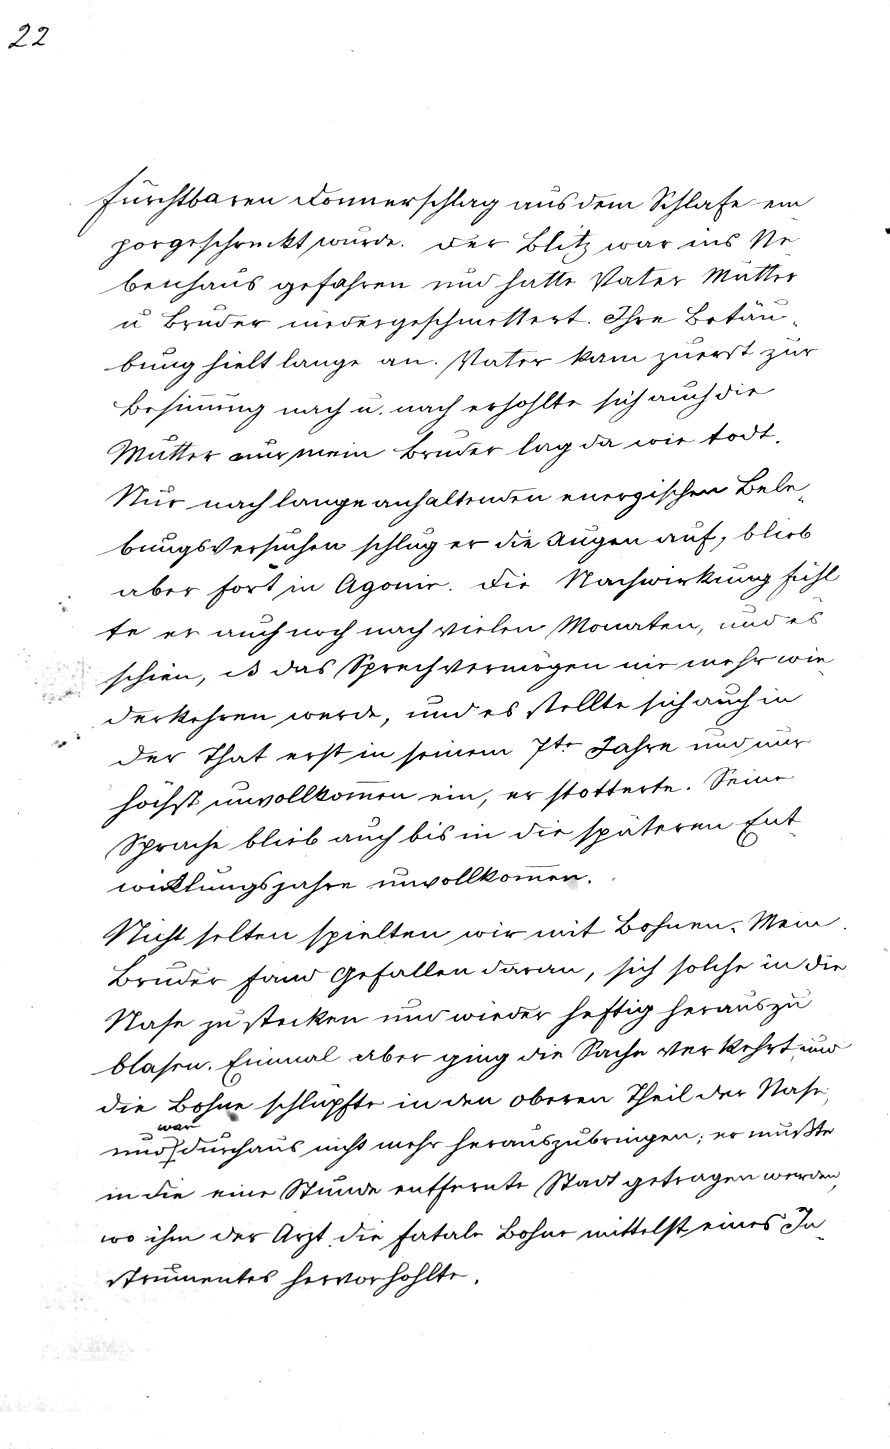 22
furchtbaren Donnerschlag aus dem Schlafe em
porgeschreckt wurde. Der Blitz war ins Ne
benhaus gefahren und hatte Vater Mutter
u Bruder niedergeschmettert. Ihre Betäu-
bung hielt lange an. Vater kam zuerst zur
Besinnung nach u. nach erhohlte sich auch die
Mutter nur mein Bruder lag da wie todt.
Nur nach lange anhaltenden energischen Bele-
bungsversuchen schlug er die Augen auf, blieb
aber fort in Agonie. Die Nachwirkung fühl
te er auch noch nach vielen Monaten, und es
schien, als das Sprechvermögen nie mehr wie
derkehren werde, und es stellte sich auch in
der That erst in seinem 7te Jahre und nur
höchst unvollkom̅en ein, er stotterte. Seine
Sprache blieb auch bis in die späteren Ent-
wicklungsjahre unvollkom̅en.
Nicht selten spielten wir mit Bohnen. Mein
Bruder fand Gefallen daran, sich solche in die
Nase zu stecken und wieder heftig herauszu
blasen. Einmal aber ging die Sache verkehrt und
die Bohne schlüpfte in den oberen Theil der Nase,
war
und durchaus nicht mehr herauszubringen; er mußte
in die eine Stunde entfernte Stadt getragen werden,
wo ihm der Arzt die fatale Bohne mittelst eines In-
strumentes hervorhohlte.